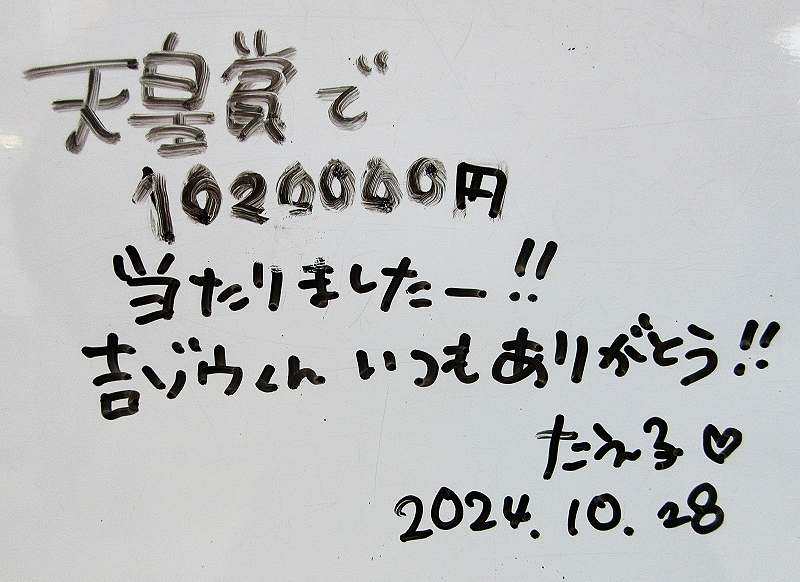 天皇賞で
1020000円
当たりましたー!!
吉ゾウくん いつもありがとう!!
たえ子♡
2024.10.28